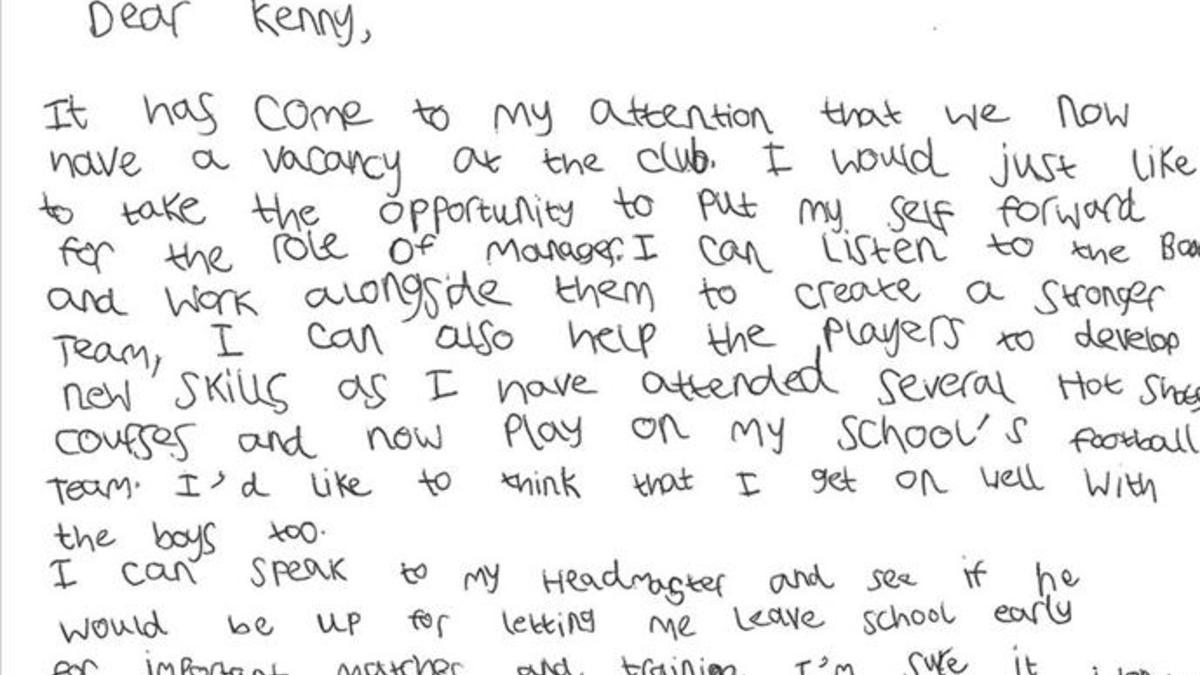 Dear Kenny,
It has come to my attention that we now
have a vacancy at the club. I would just like
to take the opportunity to put my self forward
for the role of manager. I can listen to the
and work alongside them to create a stronger
Team, I can also help the players to develop
new skills as I have attended several Hot
courses and now play on my school's football
Team. I'd like to think that I get on well with
the boys too.
I can speak to my Headmaster and see if he
would be up for letting me leave school early
for important matches and training. I'm sure it